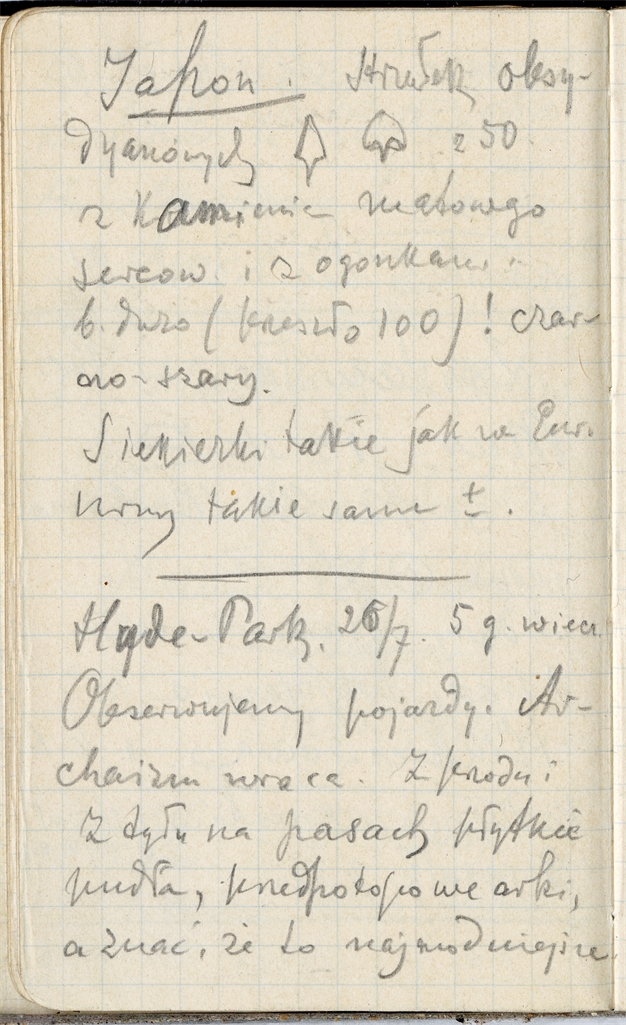 Japon. Strzałek obsy-
dyanowych z 50.
z Kamienia matowego
sercow. i z ogonkami.
b. dużo (przeszło 100)! czar-
no-szary.
Siekierki takie jak w Eur.
takie same ±.
Hyde-Park. 26/7. 5 g. wiecz.
Obserwujemy pojazdy. Ar-
chaizm wraca. Z przodu i
z tyłu na pasach płytkie
pudła, przedpotopowe arki,
a znać, że to najmodniejsze